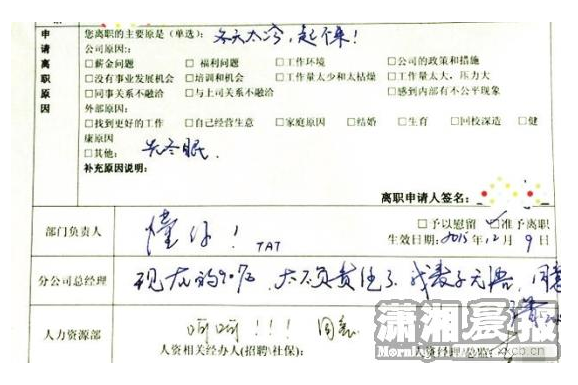 申请离职原因
您离职的主要原是(单选): 冬天太冷,起不来!
公司原因::
□薪金问题 □福利问题 □工作环境 □公司的政策和措施
□没有事业发展机会 □培训和机会 □工作量太少和太枯燥 □工作量太大,压力大
□同事关系不融洽 □与上司关系不融洽 □感到内部有不公平现象
外部原因:
□找到更好的工作 □自己经营生意 □家庭原因 □结婚 □生育 □回校深造 □健
康原因
□其他: 先冬眠
补充原因说明:
离职申请人签名:
部门负责人 懂你! TAT
□予以慰留 准予离职
生效日期: 2015年12月9日
分公司总经理 现在的90后,太不负责任了,我表示无语,同意
人力资源部 呵呵!!! 同意
人资相关经办人(招聘\社保): 人资经理/总监:
潇湘晨报